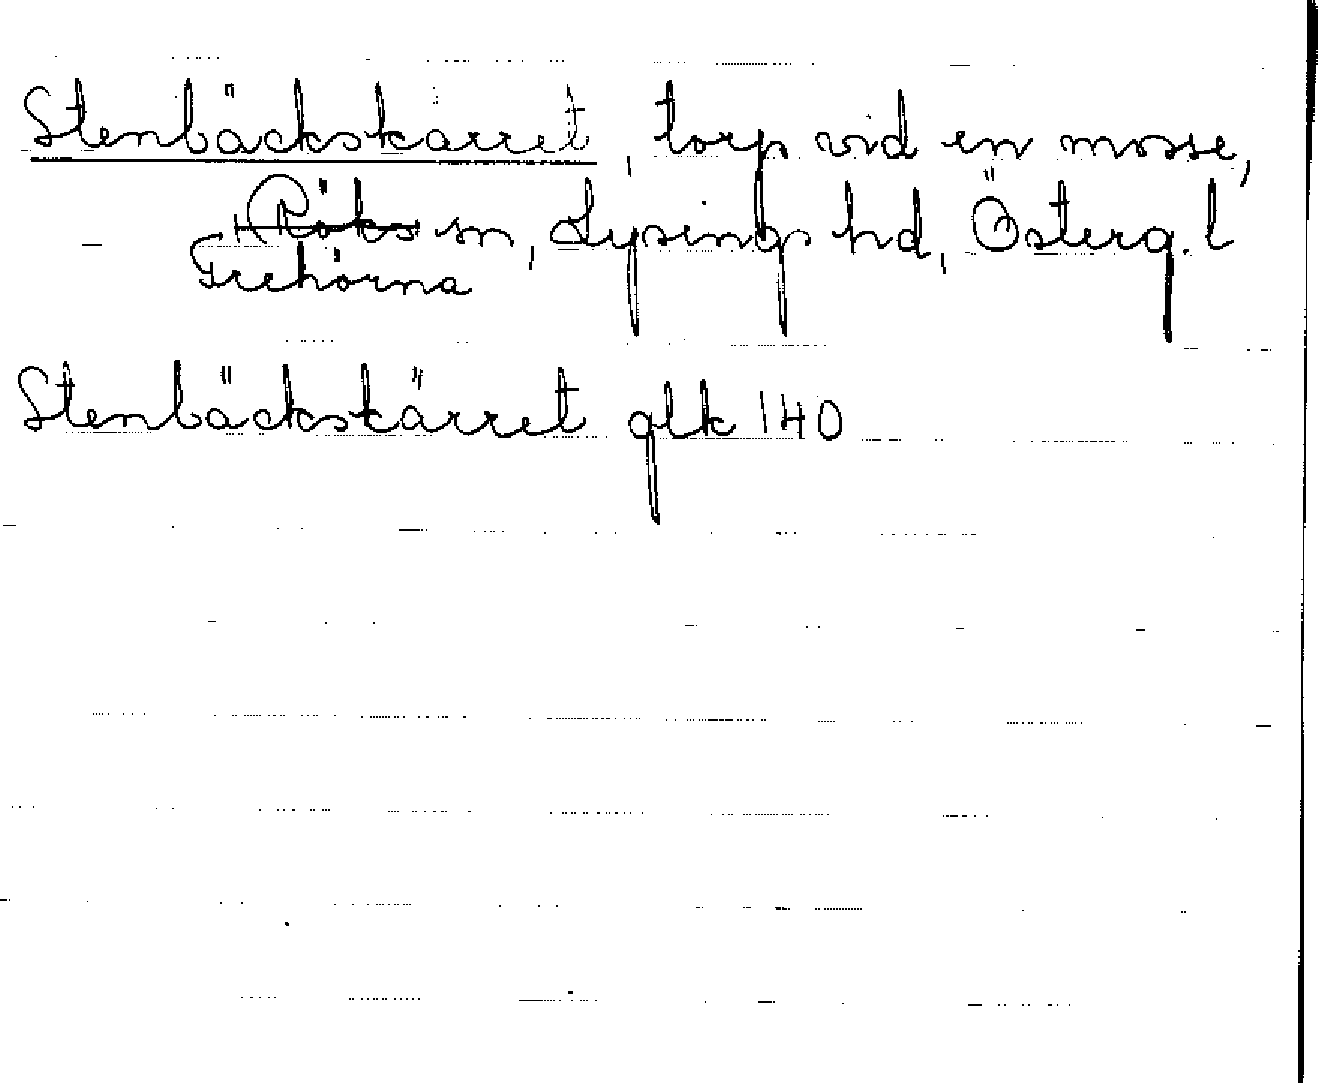 Stenbäckskärret, torp vid en mosse,
Röks sn, Lysings hd, Österg. l
Trehörna
Stenbäckskärret glk 140